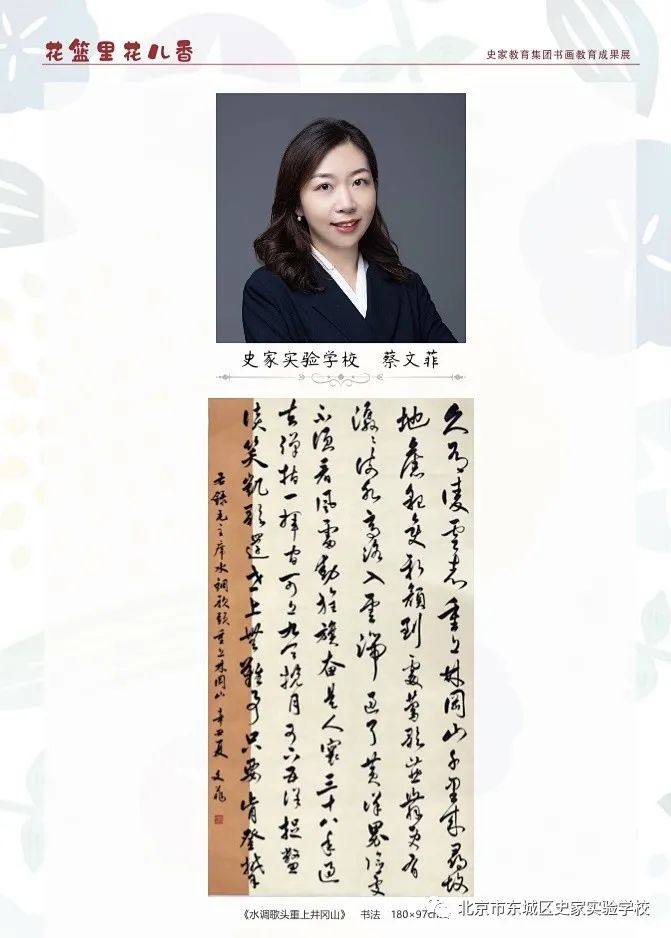 花篮里花儿香
史家教育集团书画教育成果展
史家实验学校 蔡文菲
久有凌雲志重上井岡山千里來尋故
地舊貌變新顔到處鶯歌燕舞更有
潺潺流水高路入雲端過了黄洋界險處
不須看風雷動旌旗奮是人寰三十八年過
去彈指一揮間可上九天攬月可下五洋捉鱉
談笑凱歌還世上無難事只要肯登攀
右錄毛主席水調歌頭重上井岡山 辛丑夏 文菲
《水调歌头重上井冈山》 书法 180×97cm
北京市东城区史家实验学校